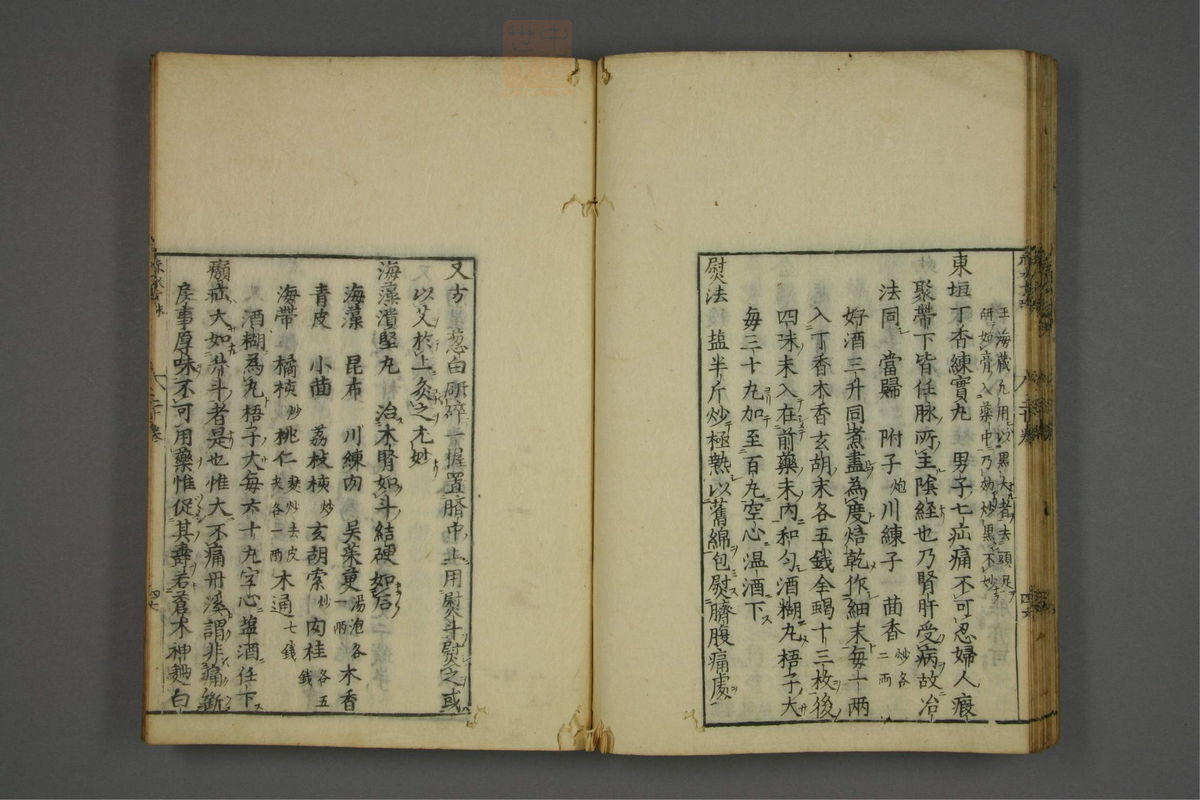 王海藏丸用之以黒大者去頭足
研如膏入藥中乃妙炒黒不妙
東垣丁香練實丸　男子七疝痛不可忍婦人瘕
聚帶下皆任脉所主陰経也乃腎肝受病故治
法同　當歸　附子炮川練子一茴香炒各二两
好酒三升同煮盡為度焙乾作細末毎十两
入丁香木香玄胡末各五錢全蝎十三枚後
四味末入在前藥末内和匀酒糊丸梧子大
毎三十丸加至百丸空心温酒下
熨法　塩半斤炒極熱以舊綿包熨臍腹痛處
又方　葱白研碎一握置臍中上用熨斗熨之或
以艾於上灸之尤妙
海藻潰堅丸　治木腎如斗結硬如石
海藻　昆布　川練肉　吳茱萸湯泡各一两木香
青皮　小茴　荔枝核炒玄胡索炒肉桂各五錢
海帶　橘核炒桃仁麩炒去皮尖各一两木通七錢
酒糊為丸梧子大毎六十丸空心塩酒任下
癩疝大如升斗者是也惟大不痛丹溪謂非痛斷
房事厚味不可用藥惟促其壽若蒼术神麯白